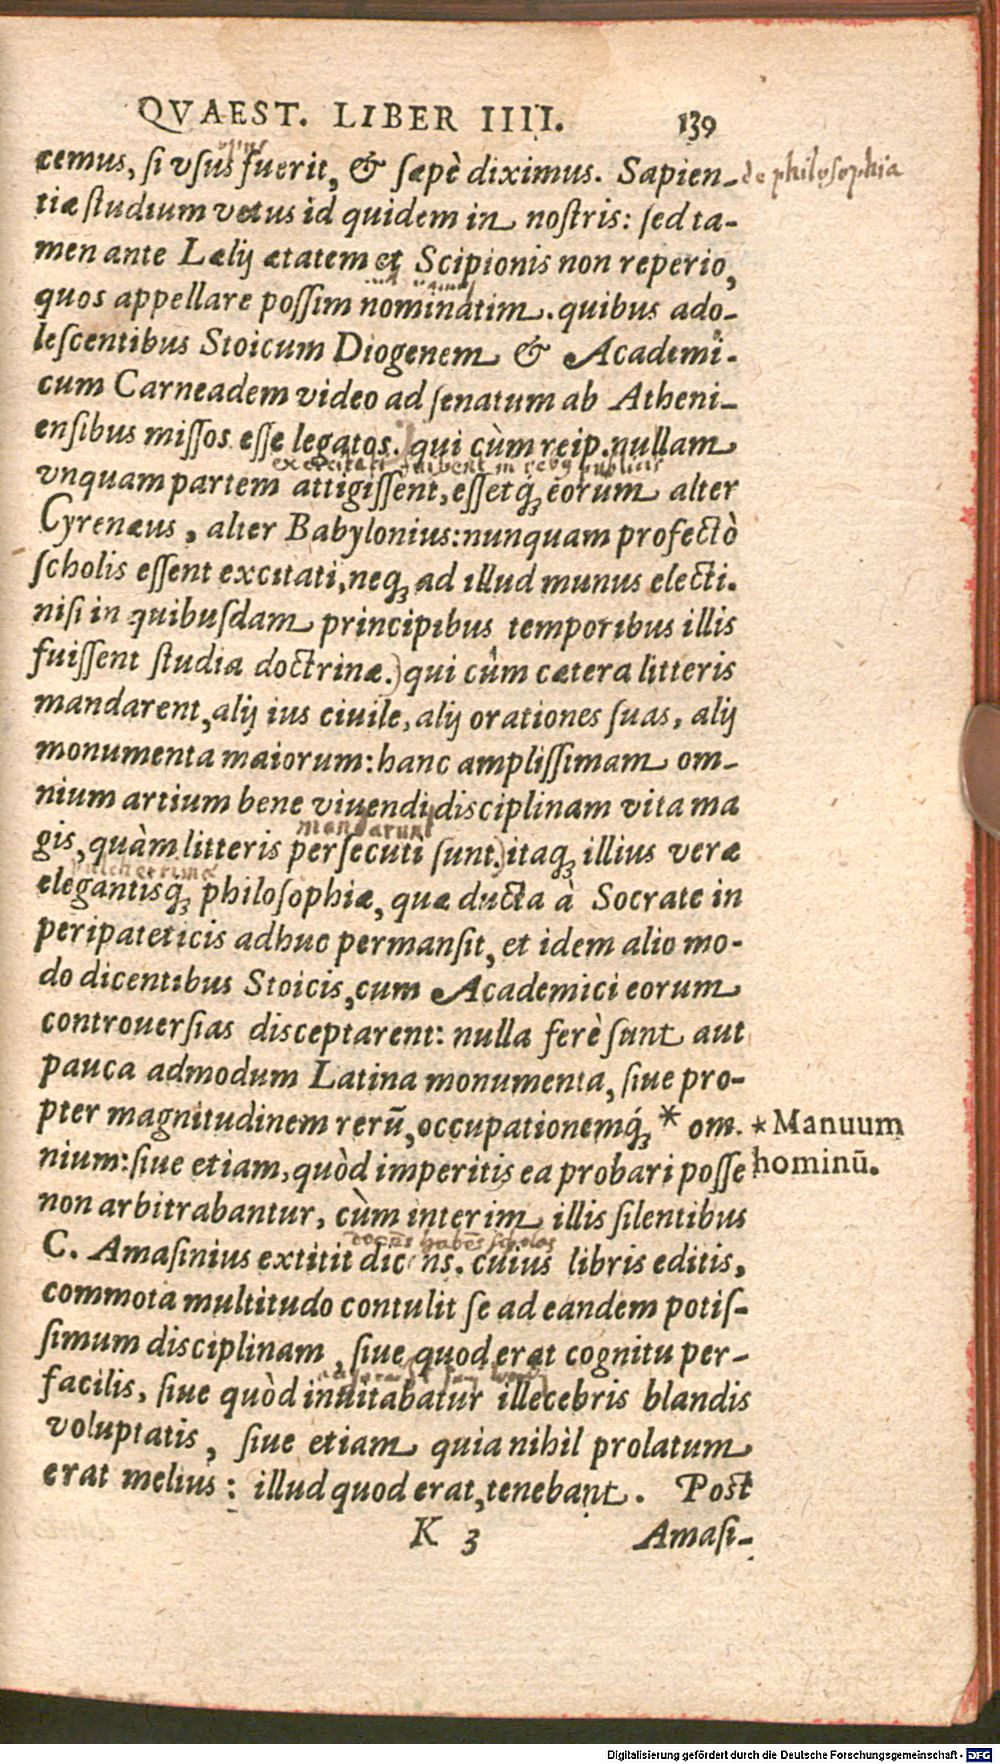 QVAEST. LIBER IIII. 139
cemus, si vsus fuerit, & sæpè diximus. Sapien-
de philosophia
tiæ studium vetus id quidem in nostris: sed ta-
men ante Lælij ætatem et Scipionis non reperio,
quos appellare possim nominatim. quibus ado-
lescentibus Stoicum Diogenem & Academi-
cum Carneadem video ad senatum ab Atheni-
ensibus missos esse legatos. qui cùm reip. nullam
vnquam partem attigissent, essetq́; eorum alter
Cyrenæus, alter Babylonius: nunquam profectò
scholis essent excitati, neq; ad illud munus electi.
nisi in quibusdam principibus temporibus illis
fuissent studia doctrinæ.) qui cùm cætera litteris
mandarent, alij ius ciuile, alij orationes suas, alij
monumenta maiorum: hanc amplissimam om-
nium artium bene viuendi disciplinam vita ma
mandarunt
gis, quàm litteris persecuti sunt.) itaq; illius veræ
elegantisq; philosophiæ, quæ ducta à Socrate in
peripateticis adhuc permansit, et idem alio mo-
do dicentibus Stoicis, cum Academici eorum
controuersias disceptarent: nulla ferè sunt aut
pauca admodum Latina monumenta, siue pro-
pter magnitudinem rerū, occupationemq́; * om.
* Manuum
nium: siue etiam, quòd imperitis ea probari posse
hominū.
non arbitrabantur, cùm interim illis silentibus
C. Amasinius extitit dicens. cuius libris editis,
commota multitudo contulit se ad eandem potis-
simum disciplinam, siue quod erat cognitu per-
facilis, siue quòd inuitabatur illecebris blandis
voluptatis, siue etiam quia nihil prolatum
erat melius: illud quod erat, tenebant. Post
K 3 Amasi-
Digitalisierung gefördert durch die Deutsche Forschungsgemeinschaft - DFG